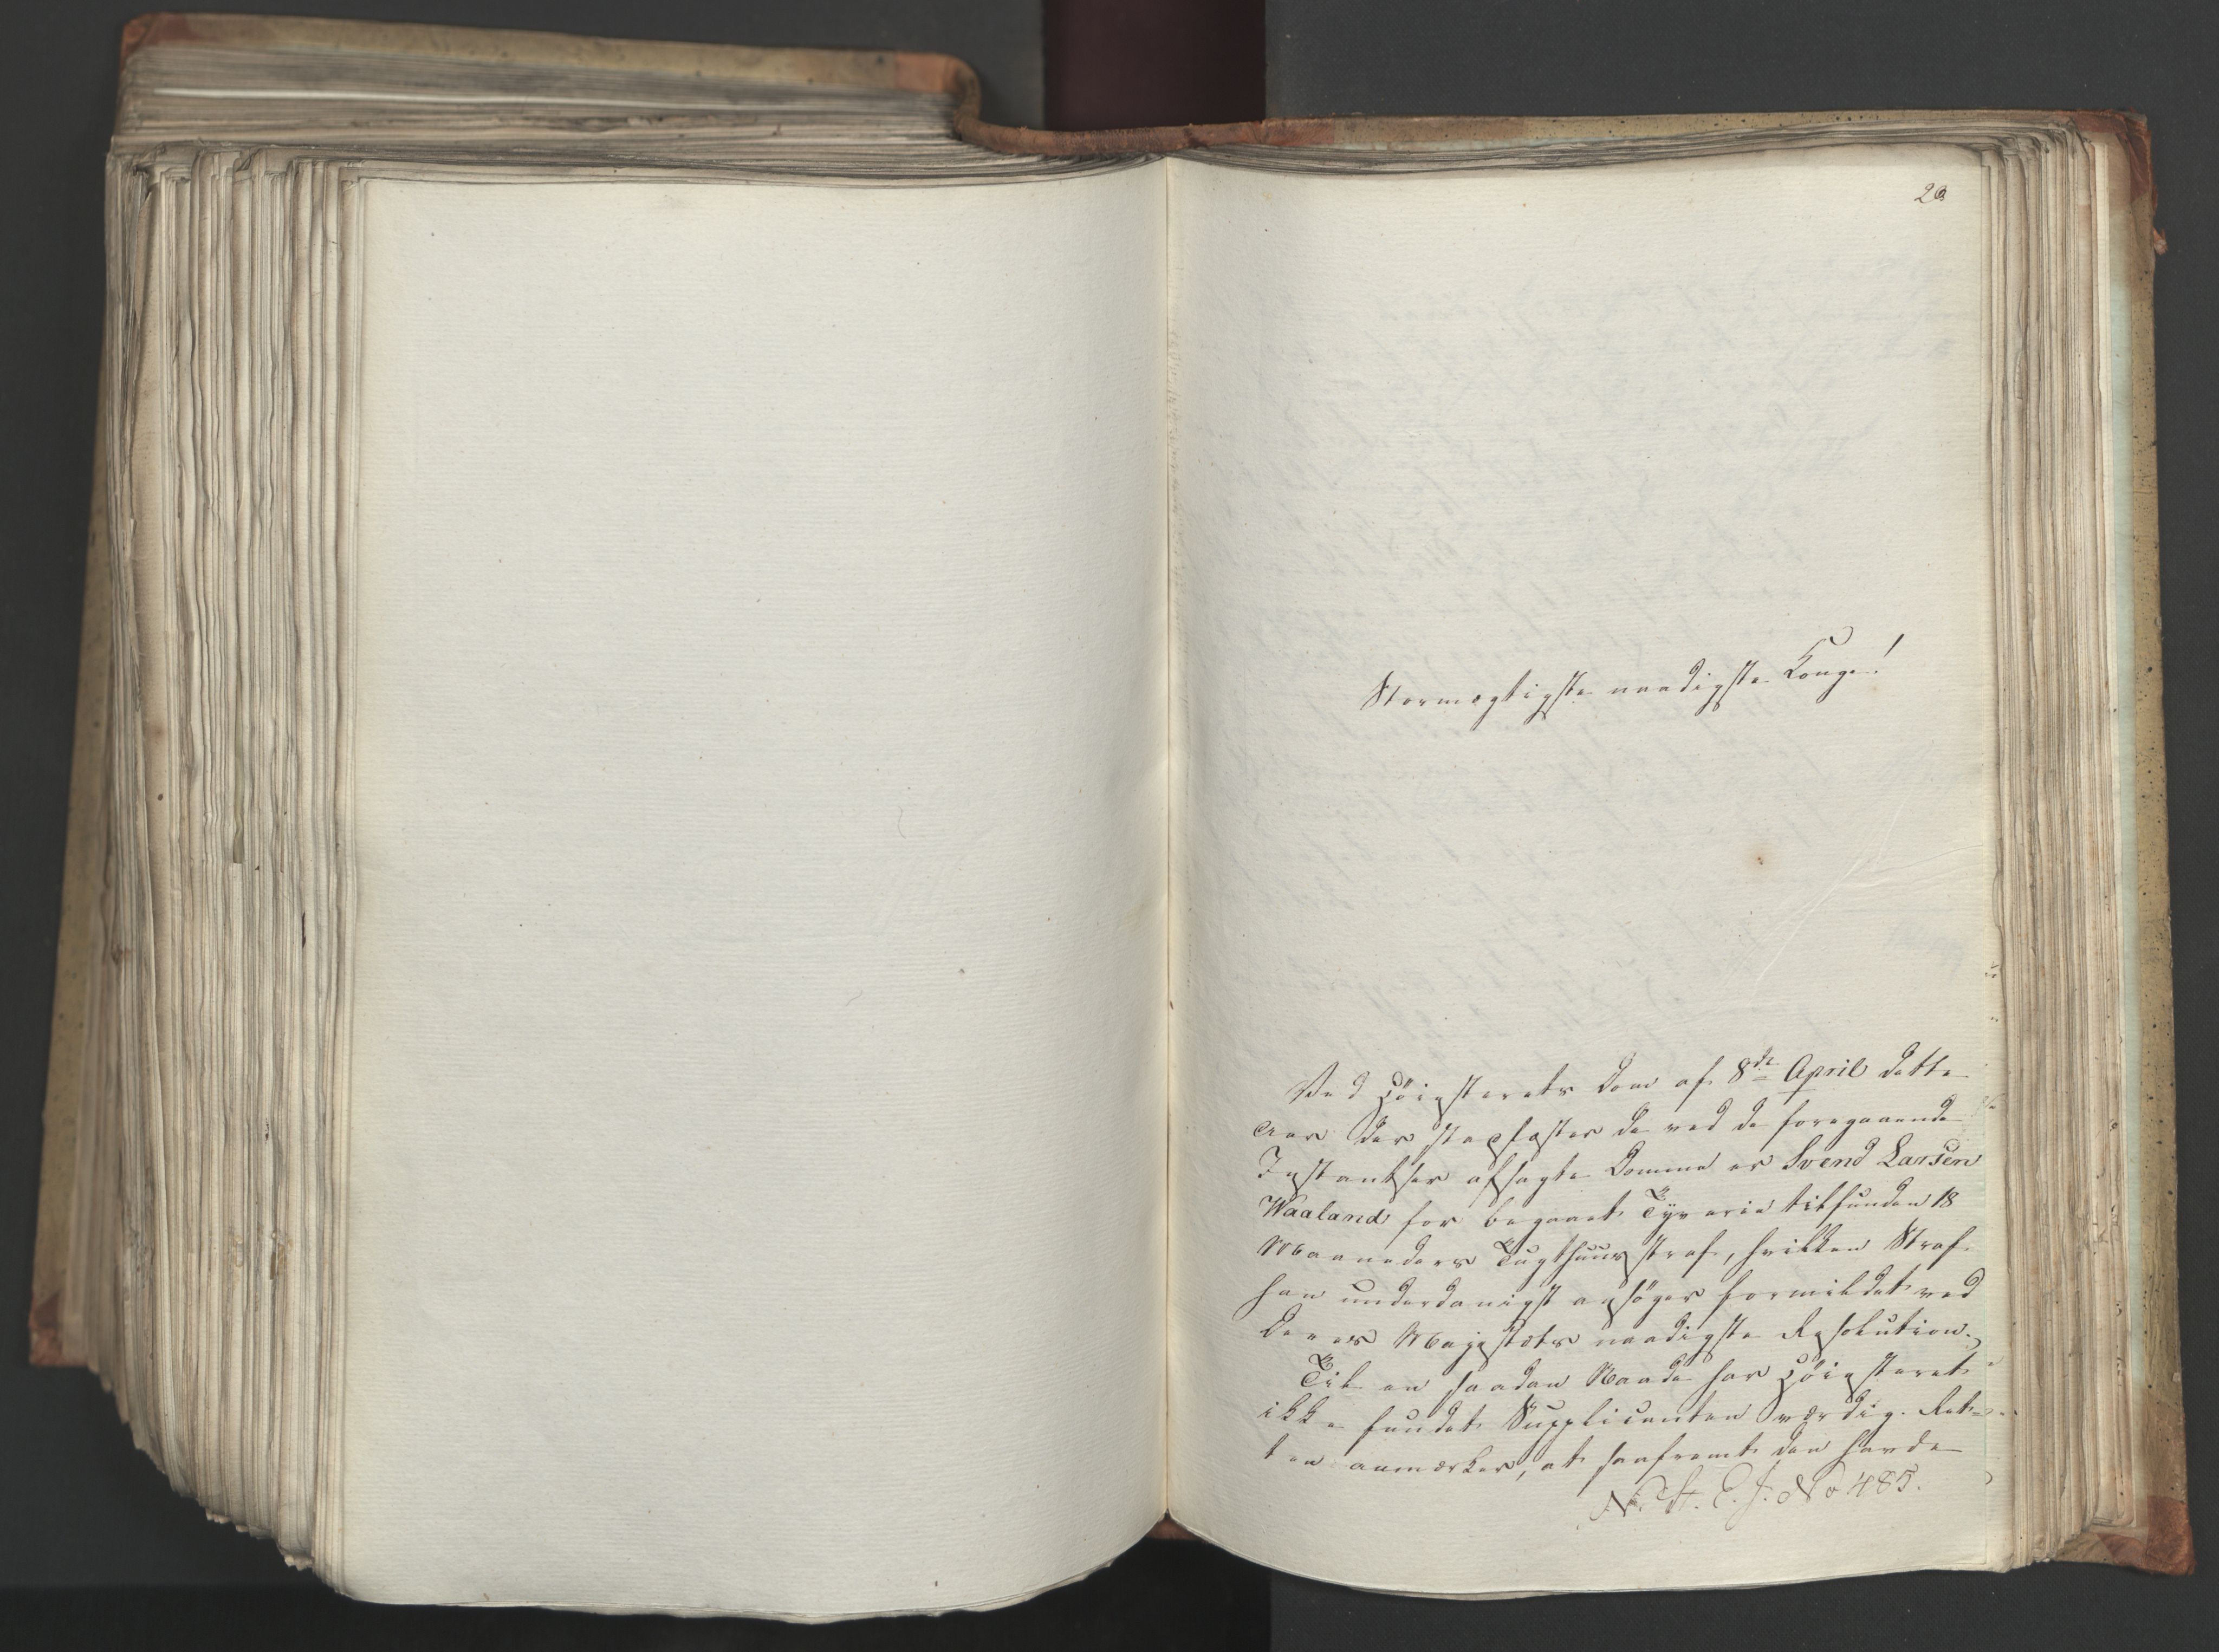 20
Stormægtigste naadigste Konge!
Ved Høiesterets Dom af 8de April dette
Aar der stadfæster de ved de foregaaende
Instantser afsagte Domme er Svend Larsen
Waaland for begaaet Tyverie tilfunden 18
Maaneders Tugthuusstraf, hvilken Straf
han underdanigst ansøger formildet ved
Deres Majestæts naadigste Resolution.
Til en saadan Naade har Høiesteret
ikke fundet Supplicanten værdig. Ret-
ten anmærker, at saafremt den havde
N. St. E. J. No 485.